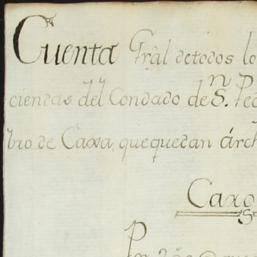 Cuenta Gràl de todos lo
ciendas del Condado de Sn. Pe
bro de Caxa, que quedan árch
Caxo